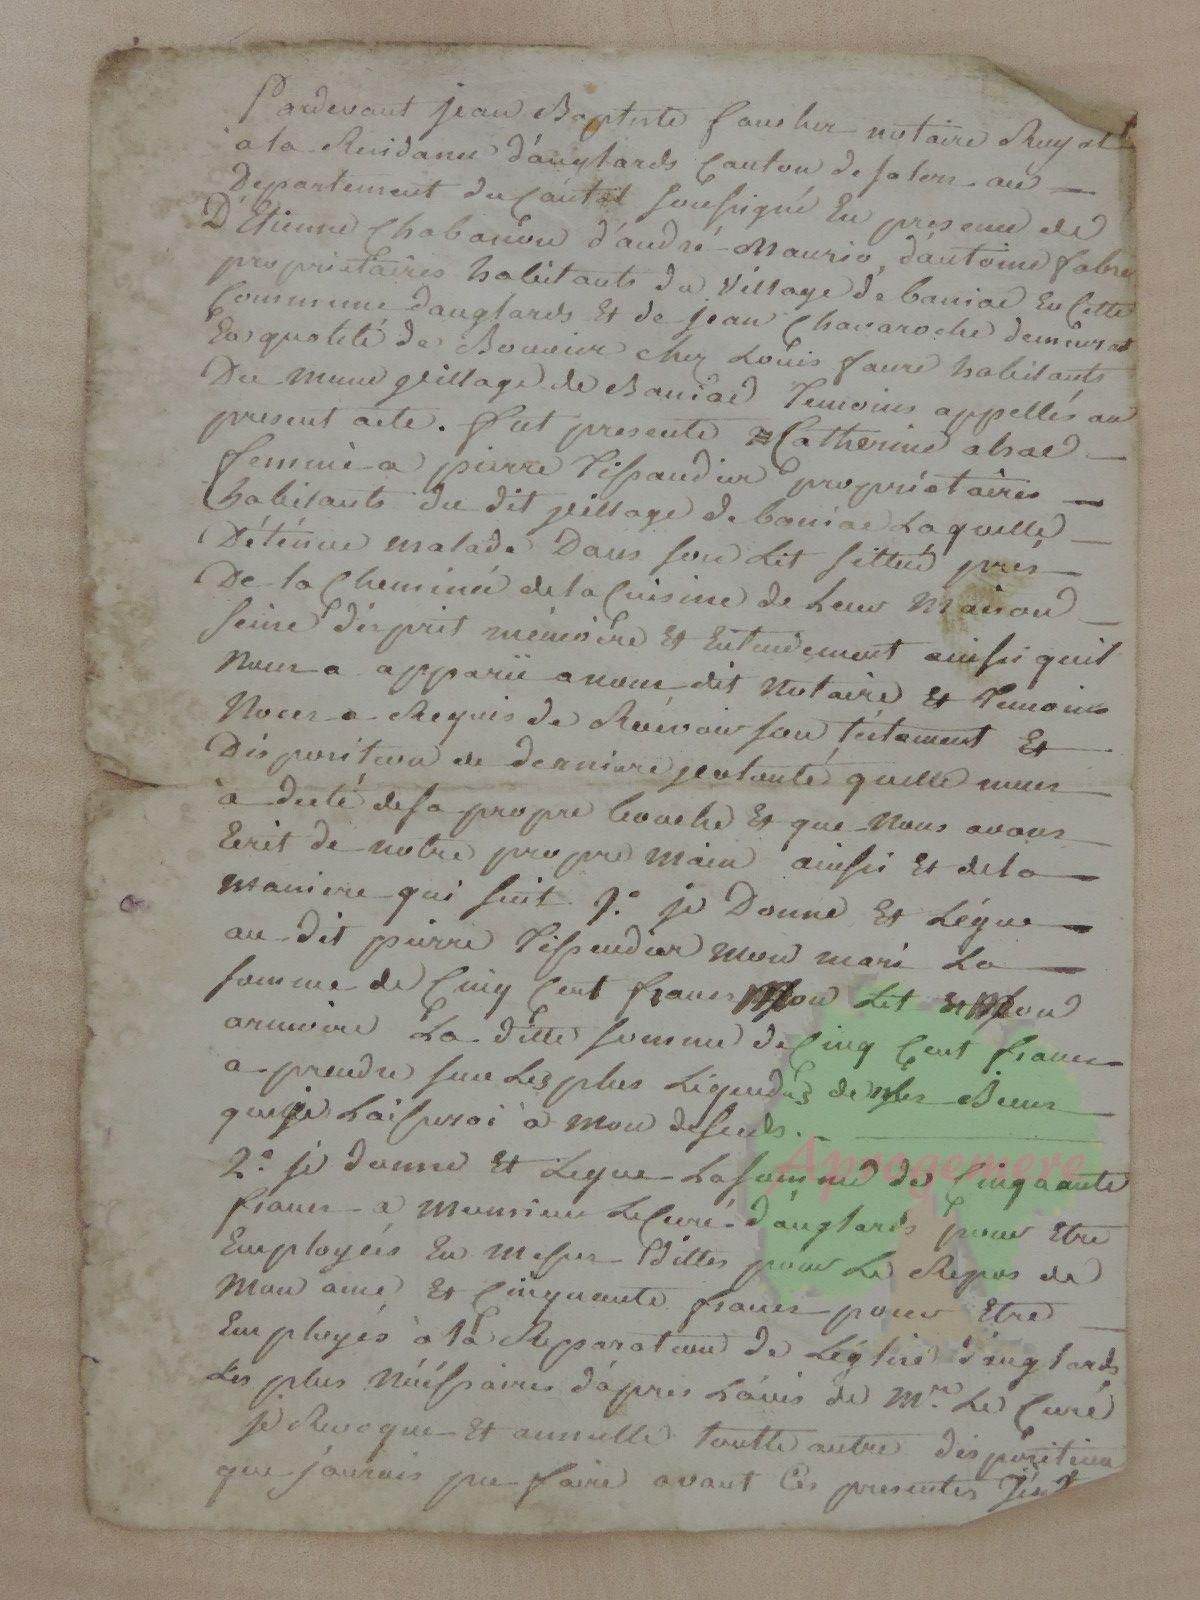 Pardevant jean Baptiste faucher notaire Royal
a la Residance d'anglards Canton de salers au
Departement du Cantal soussigné En presence de
D'Etienne Chabanon d'andré Mauric, d'antoine fabre
proprietaires habitants du village de baniac En Cette
Commune danglards Et de jean Chavaroche demeurant
En qualité de Bouvier chez Louis faure habitants
Du meme village de Baniac Temoins appellés au
present acte. fut presente Catherine
femme a pierre Tissandier propriétaires
habitants du dit village de baniac Laquelle
Détenue malade Dans son Lit sittué prés
De la Cheminée de la Cuisine de Leur Maison
seine d'esprit mémoire Et Entendement ainssi quil
Nous a apparü a nous dit Notaire Et Temoins
Nous a Requis de Reçevoir son téstament Et
Disposition de derniere volonté quelle nous
à dicté de sa propre bouche Et que Nous avons
Ecrit de notre propre main ainssi Et de la
maniere qui suit. 1.° je Donne Et Légue
au dit pierre Tissendier mon mari La
somme de Cinq Cent francs Mon Let Et Mon
armoire La ditte somme de Cinq Cent francs
a prendre sur Les plus Liquides de Mes Biens
que je Laisserai à mon desceds.
2.° je donne Et Legue La somme de Cinquante
francs a Monsieur Le Curé d'anglards pour Etre
Employés En Messes Dittes pour Le Repos de
Mon ame Et Cinquante francs pour Etre
Employés à la Reparation de L'église d'anglards
Les plus Néçéssaires d'apres L'avis de Mr. Le Curé
je Revoque Et annulle toutte autre disposition
que j'aurois pu faire avant Ces presentes
Aprogemere